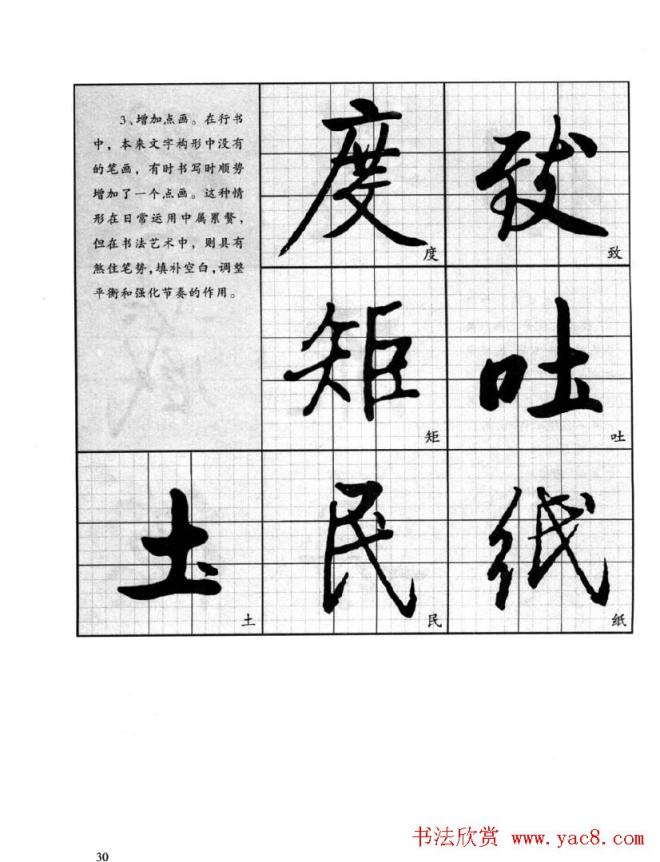 3、增加点画。在行书
中，本来文字构形中没有
的笔画，有时书写时顺势
增加了一个点画。这种情
形在日常运用中属累赘，
但在书法艺术中，则具有
煞住笔势，填补空白，调整
平衡和强化节奏的作用。
度 致
度 致
矩 吐
矩 吐
土 民 纸
土 民 紙
30
书法欣赏 www.yac8.com